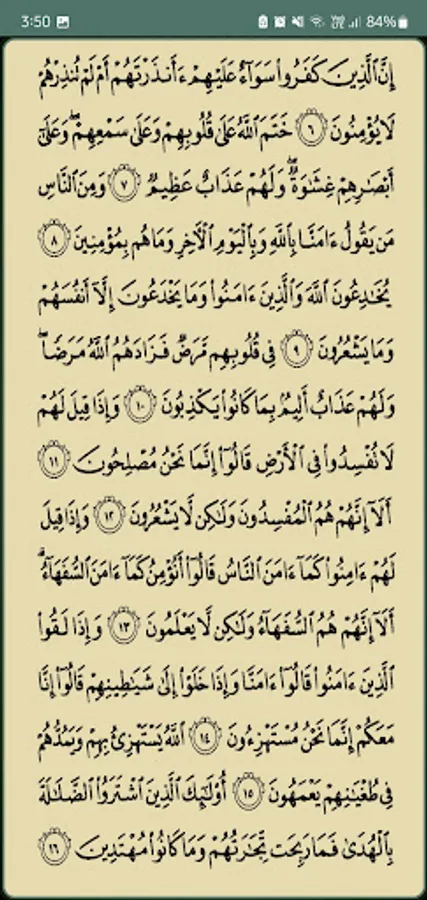 3:50 84%
إِنَّ ٱلَّذِينَ كَفَرُوا۟ سَوَآءٌ عَلَيْهِمْ ءَأَنذَرْتَهُمْ أَمْ لَمْ تُنذِرْهُمْ
لَا يُؤْمِنُونَ ٦ خَتَمَ ٱللَّهُ عَلَىٰ قُلُوبِهِمْ وَعَلَىٰ سَمْعِهِمْ ۖ وَعَلَىٰٓ
أَبْصَـٰرِهِمْ غِشَـٰوَةٌ ۖ وَلَهُمْ عَذَابٌ عَظِيمٌ ٧ وَمِنَ ٱلنَّاسِ
مَن يَقُولُ ءَامَنَّا بِٱللَّهِ وَبِٱلْيَوْمِ ٱلْـَٔاخِرِ وَمَا هُم بِمُؤْمِنِينَ ٨
يُخَـٰدِعُونَ ٱللَّهَ وَٱلَّذِينَ ءَامَنُوا۟ وَمَا يَخْدَعُونَ إِلَّآ أَنفُسَهُمْ
وَمَا يَشْعُرُونَ ٩ فِى قُلُوبِهِم مَّرَضٌ فَزَادَهُمُ ٱللَّهُ مَرَضًا ۖ
وَلَهُمْ عَذَابٌ أَلِيمٌۢ بِمَا كَانُوا۟ يَكْذِبُونَ ١٠ وَإِذَا قِيلَ لَهُمْ
لَا تُفْسِدُوا۟ فِى ٱلْأَرْضِ قَالُوٓا۟ إِنَّمَا نَحْنُ مُصْلِحُونَ ١١
أَلَآ إِنَّهُمْ هُمُ ٱلْمُفْسِدُونَ وَلَـٰكِن لَّا يَشْعُرُونَ ١٢ وَإِذَا قِيلَ
لَهُمْ ءَامِنُوا۟ كَمَآ ءَامَنَ ٱلنَّاسُ قَالُوٓا۟ أَنُؤْمِنُ كَمَآ ءَامَنَ ٱلسُّفَهَآءُ ۗ
أَلَآ إِنَّهُمْ هُمُ ٱلسُّفَهَآءُ وَلَـٰكِن لَّا يَعْلَمُونَ ١٣ وَإِذَا لَقُوا۟
ٱلَّذِينَ ءَامَنُوا۟ قَالُوٓا۟ ءَامَنَّا وَإِذَا خَلَوْا۟ إِلَىٰ شَيَـٰطِينِهِمْ قَالُوٓا۟ إِنَّا
مَعَكُمْ إِنَّمَا نَحْنُ مُسْتَهْزِءُونَ ١٤ ٱللَّهُ يَسْتَهْزِئُ بِهِمْ وَيَمُدُّهُمْ
فِى طُغْيَـٰنِهِمْ يَعْمَهُونَ ١٥ أُو۟لَـٰٓئِكَ ٱلَّذِينَ ٱشْتَرَوُا۟ ٱلضَّلَـٰلَةَ
بِٱلْهُدَىٰ فَمَا رَبِحَت تِّجَـٰرَتُهُمْ وَمَا كَانُوا۟ مُهْتَدِينَ ١٦